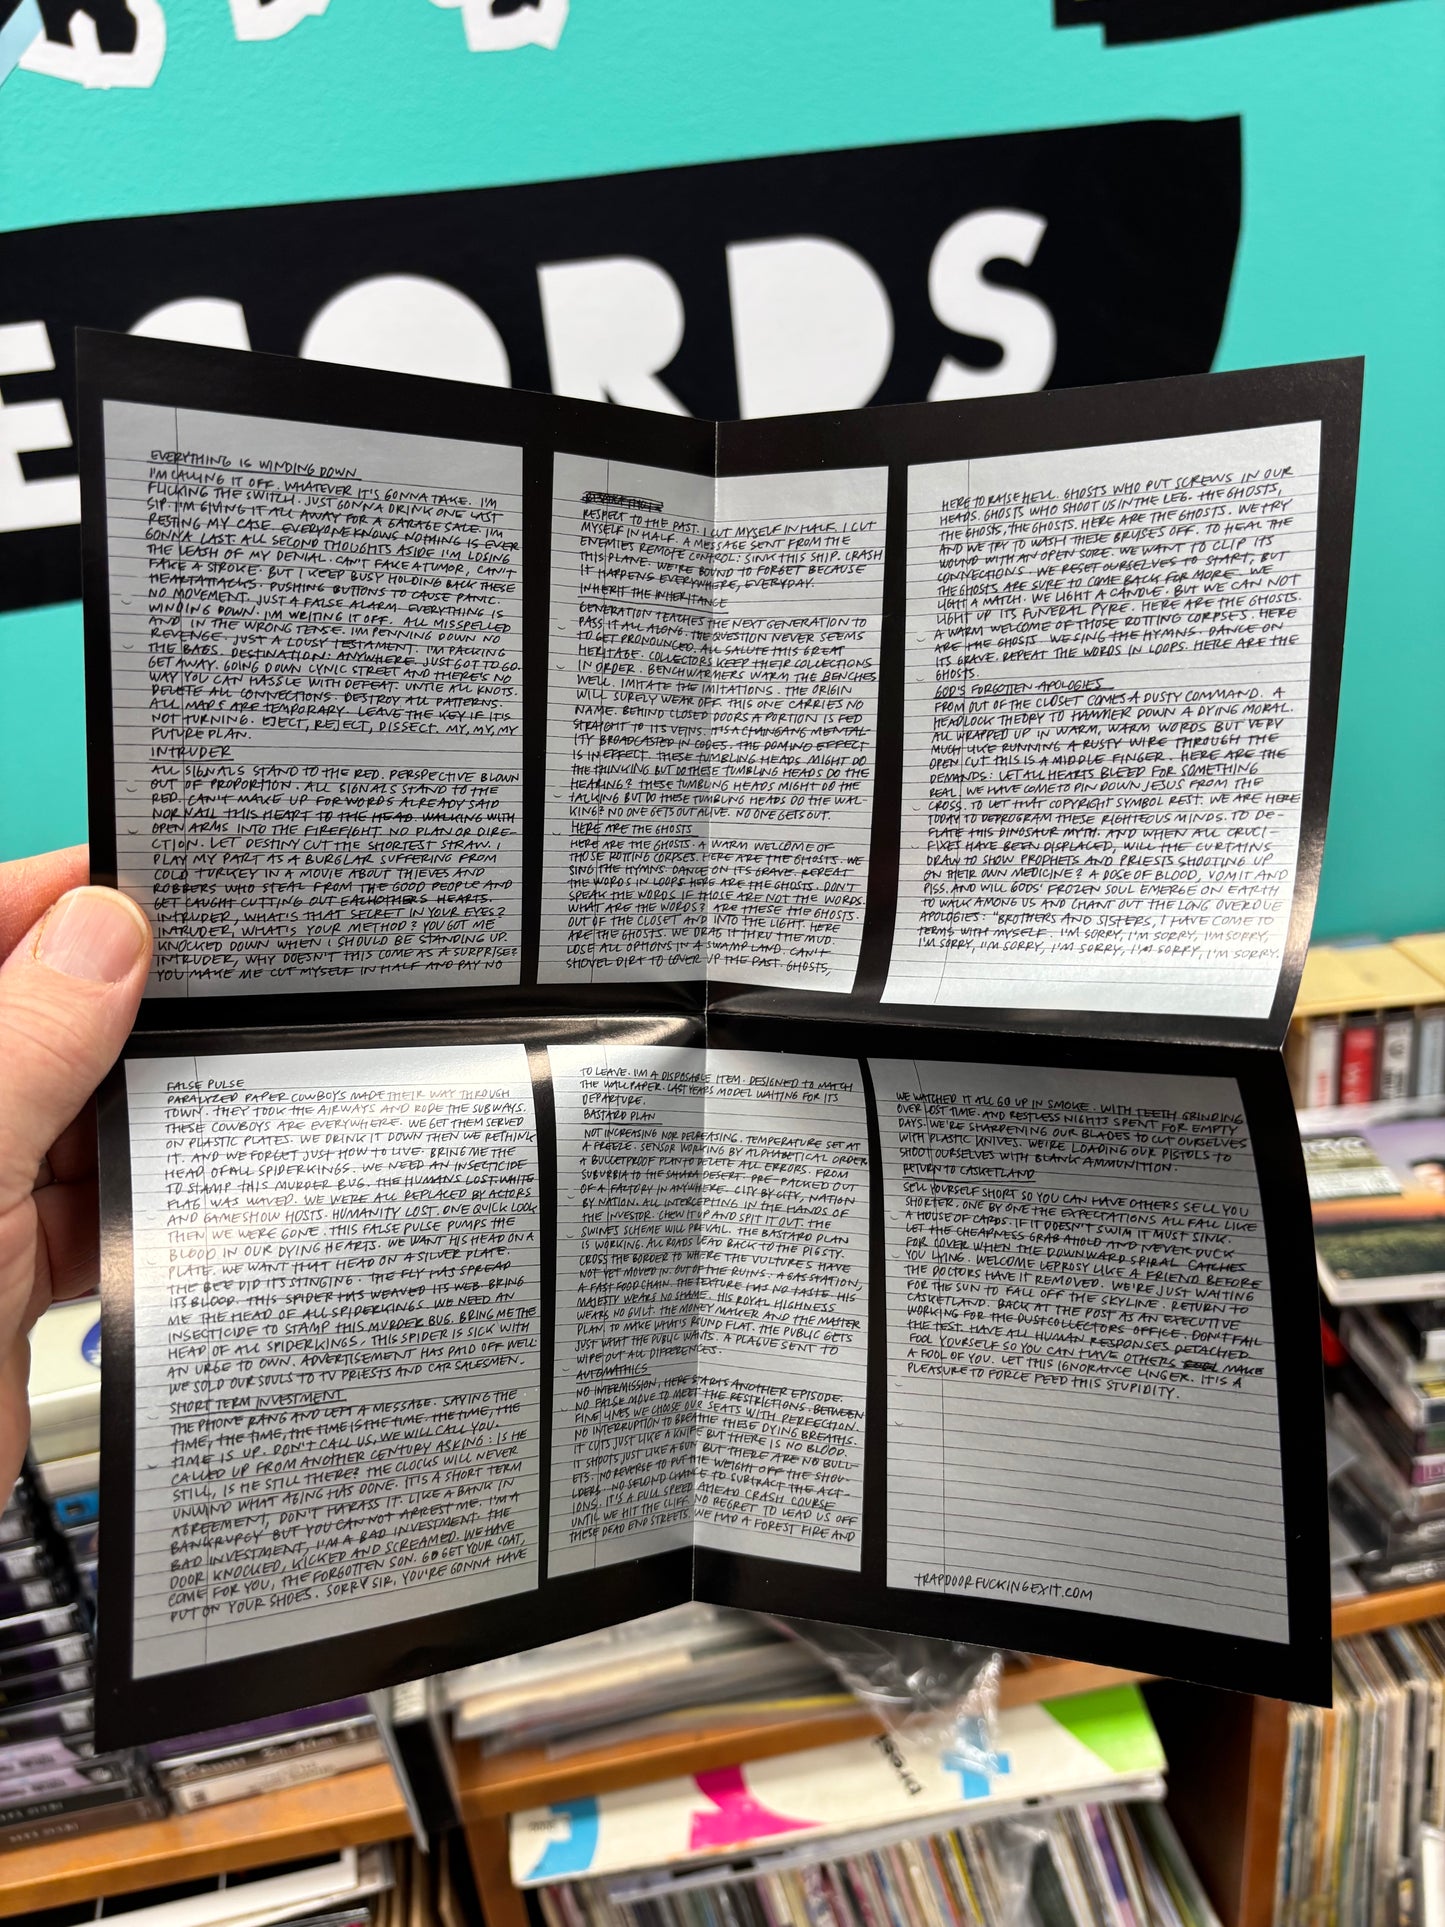 RECORDS
EVERYTHING IS WINDING DOWN
I'M CALLING IT OFF. WHATEVER IT'S GONNA TAKE. I'M
FLICKING THE SWITCH. JUST GONNA DRINK ONE LAST
SIP. I'M GIVING IT ALL AWAY FOR A GARAGE SALE. I'M
RESTING MY CASE. EVERYONE KNOWS NOTHING IS EVER
GONNA LAST. ALL SECOND THOUGHTS ASIDE I'M LOSING
THE LEASH OF MY DENIAL. CAN'T FAKE A TUMOR, CAN'T
FAKE A STROKE. BUT I KEEP BUSY HOLDING BACK THESE
HEARTATTACKS. PUSHING BUTTONS TO CAUSE PANIC.
NO MOVEMENT. JUST A FALSE ALARM. EVERYTHING IS
WINDING DOWN. I'M WRITING IT OFF. ALL MISSPELLED
AND IN THE WRONG TENSE. I'M PENNING DOWN NO
REVENGE. JUST A LOUSY TESTAMENT. I'M PACKING
THE BAGS. DESTINATION: ANYWHERE. JUST GOT TO GO.
GET AWAY. GOING DOWN CYNIC STREET AND THERE'S NO
WAY YOU CAN HASSLE WITH DEFEAT. UNTIE ALL KNOTS.
DELETE ALL CONNECTIONS. DESTROY ALL PATTERNS.
ALL MAPS ARE TEMPORARY. LEAVE THE KEY IF IT'S
NOT TURNING. EJECT, REJECT, DISSECT. MY, MY, MY
FUTURE PLAN.
INTRUDER
ALL SIGNALS STAND TO THE RED. PERSPECTIVE BLOWN
OUT OF PROPORTION. ALL SIGNALS STAND TO THE
RED. CAN'T MAKE UP FOR WORDS ALREADY SAID
NOR NAIL THIS HEART TO THE HEAD. WALKING WITH
OPEN ARMS INTO THE FIREFIGHT. NO PLAN OR DIRE-
CTION. LET DESTINY CUT THE SHORTEST STRAW. I
PLAY MY PART AS A BURGLAR SUFFERING FROM
COLD TURKEY IN A MOVIE ABOUT THIEVES AND
ROBBERS WHO STEAL FROM THE GOOD PEOPLE AND
GET CAUGHT CUTTING OUT EACHOTHERS HEARTS.
INTRUDER, WHAT'S THAT SECRET IN YOUR EYES?
INTRUDER, WHAT'S YOUR METHOD? YOU GOT ME
KNOCKED DOWN WHEN I SHOULD BE STANDING UP.
INTRUDER, WHY DOESN'T THIS COME AS A SURPRISE?
YOU MAKE ME CUT MYSELF IN HALF AND PAY NO
RESPECT TO THE PAST. I CUT MYSELF IN HALF. I CUT
MYSELF IN HALF. A MESSAGE SENT FROM THE
ENEMIES REMOTE CONTROL: SINK THIS SHIP. CRASH
THIS PLANE. WE'RE BOUND TO FORGET BECAUSE
IT HAPPENS EVERYWHERE, EVERYDAY.
INHERIT THE INHERITANCE
GENERATION TEACHES THE NEXT GENERATION TO
PASS IT ALL ALONG. THE QUESTION NEVER SEEMS
TO GET PRONOUNCED. ALL SALUTE THIS GREAT
HERITAGE. COLLECTORS KEEP THEIR COLLECTIONS
IN ORDER. BENCHWARMERS WARM THE BENCHES
WELL. IMITATE THE IMITATIONS. THE ORIGIN
WILL SURELY WEAR OFF. THIS ONE CARRIES NO
NAME. BEHIND CLOSED DOORS A PORTION IS FED
STRAIGHT TO ITS VEINS. IT'S A CHAINGANG MENTAL-
ITY BROADCASTED IN CODES. THE DOMINO EFFECT
IS IN EFFECT. THESE TUMBLING HEADS MIGHT DO
THE THINKING BUT DO THESE TUMBLING HEADS DO THE
HEARING? THESE TUMBLING HEADS MIGHT DO THE
TALKING BUT DO THESE TUMBLING HEADS DO THE WAL-
KING? NO ONE GETS OUT ALIVE. NO ONE GETS OUT.
HERE ARE THE GHOSTS
HERE ARE THE GHOSTS. A WARM WELCOME OF
THOSE ROTTING CORPSES. HERE ARE THE GHOSTS. WE
SING THE HYMNS. DANCE ON ITS GRAVE. REPEAT
THE WORDS IN LOOPS. HERE ARE THE GHOSTS. DON'T
SPEAK THE WORDS IF THOSE ARE NOT THE WORDS.
WHAT ARE THE WORDS? ARE THESE THE GHOSTS.
OUT OF THE CLOSET AND INTO THE LIGHT. HERE
ARE THE GHOSTS. WE DRAG IT THRU THE MUD.
LOSE ALL OPTIONS IN A SWAMPLAND. CAN'T
SHOVEL DIRT TO COVER UP THE PAST. GHOSTS,
HERE TO RAISE HELL. GHOSTS WHO PUT SCREWS IN OUR
HEADS. GHOSTS WHO SHOOT US IN THE LEG. THE GHOSTS,
THE GHOSTS, THE GHOSTS. HERE ARE THE GHOSTS. WE TRY
AND WE TRY TO WASH THESE BRUISES OFF. TO HEAL THE
WOUND WITH AN OPEN SORE. WE WANT TO CLIP ITS
CONNECTIONS. WE RESET OURSELVES TO START, BUT
THE GHOSTS ARE SURE TO COME BACK FOR MORE. WE
LIGHT A MATCH. WE LIGHT A CANDLE. BUT WE CAN NOT
LIGHT UP ITS FUNERAL PYRE. HERE ARE THE GHOSTS.
A WARM WELCOME OF THOSE ROTTING CORPSES. HERE
ARE THE GHOSTS. WE SING THE HYMNS. DANCE ON
ITS GRAVE. REPEAT THE WORDS IN LOOPS. HERE ARE THE
GHOSTS.
GOD'S FORGOTTEN APOLOGIES
FROM OUT OF THE CLOSET COMES A DUSTY COMMAND. A
HEADLOCK THEORY TO HAMMER DOWN A DYING MORAL.
ALL WRAPPED UP IN WARM, WARM WORDS BUT VERY
MUCH LIKE RUNNING A RUSTY WIRE THROUGH THE
OPEN CUT THIS IS A MIDDLE FINGER. HERE ARE THE
DEMANDS: LET ALL HEARTS BLEED FOR SOMETHING
REAL. WE HAVE COME TO PIN DOWN JESUS FROM THE
CROSS. TO LET THAT COPYRIGHT SYMBOL REST. WE ARE HERE
TODAY TO DEPROGRAM THESE RIGHTEOUS MINDS. TO DE-
FLATE THIS DINOSAUR MYTH. AND WHEN ALL CRUCI-
FIXES HAVE BEEN DISPLACED, WILL THE CURTAINS
DRAW TO SHOW PROPHETS AND PRIESTS SHOOTING UP
ON THEIR OWN MEDICINE? A DOSE OF BLOOD, VOMIT AND
PISS. AND WILL GODS' FROZEN SOUL EMERGE ON EARTH
TO WALK AMONG US AND CHANT OUT THE LONG OVERDUE
APOLOGIES: "BROTHERS AND SISTERS, I HAVE COME TO
TERMS WITH MYSELF. I'M SORRY, I'M SORRY, I'M SORRY,
I'M SORRY, I'M SORRY, I'M SORRY, I'M SORRY, I'M SORRY.
FALSE PULSE
PARALYZED PAPER COWBOYS MADE THEIR WAY THROUGH
TOWN. THEY TOOK THE AIRWAYS AND RODE THE SUBWAYS.
THESE COWBOYS ARE EVERYWHERE. WE GET THEM SERVED
ON PLASTIC PLATES. WE DRINK IT DOWN THEN WE RETHINK
IT. AND WE FORGET JUST HOW TO LIVE. BRING ME THE
HEAD OF ALL SPIDERKINGS. WE NEED AN INSECTICIDE
TO STAMP THIS MURDER BUG. THE HUMANS LOST WHITE
FLAG WAS WAVED. WE WERE ALL REPLACED BY ACTORS
AND GAMESHOW HOSTS. HUMANITY LOST. ONE QUICK LOOK
THEN WE WERE GONE. THIS FALSE PULSE PUMPS THE
BLOOD IN OUR DYING HEARTS. WE WANT HIS HEAD ON A
PLATE. WE WANT THAT HEAD ON A SILVER PLATE.
THE BEE DID ITS STINGING. THE FLY HAS SPREAD
ITS BLOOD. THIS SPIDER HAS WEAVED ITS WEB. BRING
ME THE HEAD OF ALL SPIDERKINGS. WE NEED AN
INSECTICIDE TO STAMP THIS MURDER BUG. BRING ME THE
HEAD OF ALL SPIDERKINGS. THIS SPIDER IS SICK WITH
AN URGE TO OWN. ADVERTISEMENT HAS PAID OFF WELL:
WE SOLD OUR SOULS TO TV PRIESTS AND CAR SALESMEN.
SHORT TERM INVESTMENT
THE PHONE RANG AND LEFT A MESSAGE. SAYING THE
TIME, THE TIME, THE TIME IS THE TIME. THE TIME, THE
TIME IS UP. DON'T CALL US, WE WILL CALL YOU.
CALLED UP FROM ANOTHER CENTURY ASKING: IS HE
STILL, IS HE STILL THERE? THE CLOCKS WILL NEVER
UNWIND WHAT AGING HAS DONE. IT IS A SHORT TERM
AGREEMENT, DON'T HARASS IT. LIKE A BANK IN
BANKRUPCY BUT YOU CAN NOT ARREST ME. I'M A
BAD INVESTMENT, I'M A BAD INVESTMENT. THE
DOOR KNOCKED, KICKED AND SCREAMED. WE HAVE
COME FOR YOU, THE FORGOTTEN SON. GO GET YOUR COAT,
PUT ON YOUR SHOES. SORRY SIR, YOU'RE GONNA HAVE
TO LEAVE. I'M A DISPOSABLE ITEM. DESIGNED TO MATCH
THE WALLPAPER. LAST YEARS MODEL WAITING FOR ITS
DEPARTURE.
BASTARD PLAN
NOT INCREASING NOR DECREASING. TEMPERATURE SET AT
A FREEZE. SENSOR WORKING BY ALPHABETICAL ORDER
A BULLETPROOF PLAN TO DELETE ALL ERRORS. FROM
SUBURBIA TO THE SAHARA DESERT. PRE-PACKED OUT
OF A FACTORY IN ANYWHERE. CITY BY CITY, NATION
BY NATION. ALL INTERCEPTING IN THE HANDS OF
THE INVESTOR. CHEW IT UP AND SPIT IT OUT. THE
SWINES SCHEME WILL PREVAIL. THE BASTARD PLAN
IS WORKING. ALL ROADS LEAD BACK TO THE PIGSTY.
CROSS THE BORDER TO WHERE THE VULTURES HAVE
NOT YET MOVED IN. OUT OF THE RUINS. A GAS STATION,
A FAST FOOD CHAIN. THE TEXTURE HAS NO TASTE. HIS
MAJESTY WEARS NO SHAME. HIS ROYAL HIGHNESS
WEARS NO GUILT. THE MONEY MAKER AND THE MASTER
PLAN, TO MAKE WHAT'S ROUND FLAT. THE PUBLIC GETS
JUST WHAT THE PUBLIC WANTS. A PLAGUE SENT TO
WIPE OUT ALL DIFFERENCES.
AUTOMATHICS
NO INTERMISSION, HERE STARTS ANOTHER EPISODE.
NO FALSE MOVE TO MEET THE RESTRICTIONS. BETWEEN
FINE LINES WE CHOOSE OUR SEATS WITH PERFECTION.
NO INTERRUPTION TO BREATHE THESE DYING BREATHS.
IT CUTS JUST LIKE A KNIFE BUT THERE IS NO BLOOD.
IT SHOOTS JUST LIKE A GUN BUT THERE ARE NO BULL-
ETS. NO REVERSE TO PUT THE WEIGHT OFF THE SHOU-
LDERS. NO SECOND CHANCE TO SUBTRACT THE ACT-
IONS. IT'S A FULL SPEED AHEAD CRASH COURSE
UNTIL WE HIT THE CLIFF. NO REGRET TO LEAD US OFF
THESE DEAD END STREETS. WE HAD A FOREST FIRE AND
WE WATCHED IT ALL GO UP IN SMOKE. WITH TEETH GRINDING
OVER LOST TIME. AND RESTLESS NIGHTS SPENT FOR EMPTY
DAYS. WE'RE SHARPENING OUR BLADES TO CUT OURSELVES
WITH PLASTIC KNIVES. WE'RE LOADING OUR PISTOLS TO
SHOOT OURSELVES WITH BLANK AMMUNITION.
RETURN TO CASKETLAND
SELL YOURSELF SHORT SO YOU CAN HAVE OTHERS SELL YOU
SHORTER. ONE BY ONE THE EXPECTATIONS ALL FALL LIKE
A HOUSE OF CARDS. IF IT DOESN'T SWIM IT MUST SINK.
LET THE CHEAPNESS GRAB AHOLD AND NEVER DUCK
FOR COVER WHEN THE DOWNWARD SPIRAL CATCHES
YOU LYING. WELCOME LEPROSY LIKE A FRIEND BEFORE
THE DOCTORS HAVE IT REMOVED. WE'RE JUST WAITING
FOR THE SUN TO FALL OFF THE SKYLINE. RETURN TO
CASKETLAND. BACK AT THE POST AS AN EXECUTIVE
WORKING FOR THE DUSTCOLLECTORS OFFICE. DON'T FAIL
THE TEST. HAVE ALL HUMAN RESPONSES DETACHED.
FOOL YOURSELF SO YOU CAN HAVE OTHERS MAKE
A FOOL OF YOU. LET THIS IGNORANCE LINGER. IT'S A
PLEASURE TO FORCE FEED THIS STUPIDITY.
TRAPDOORFUCKINGEXIT.COM
prest